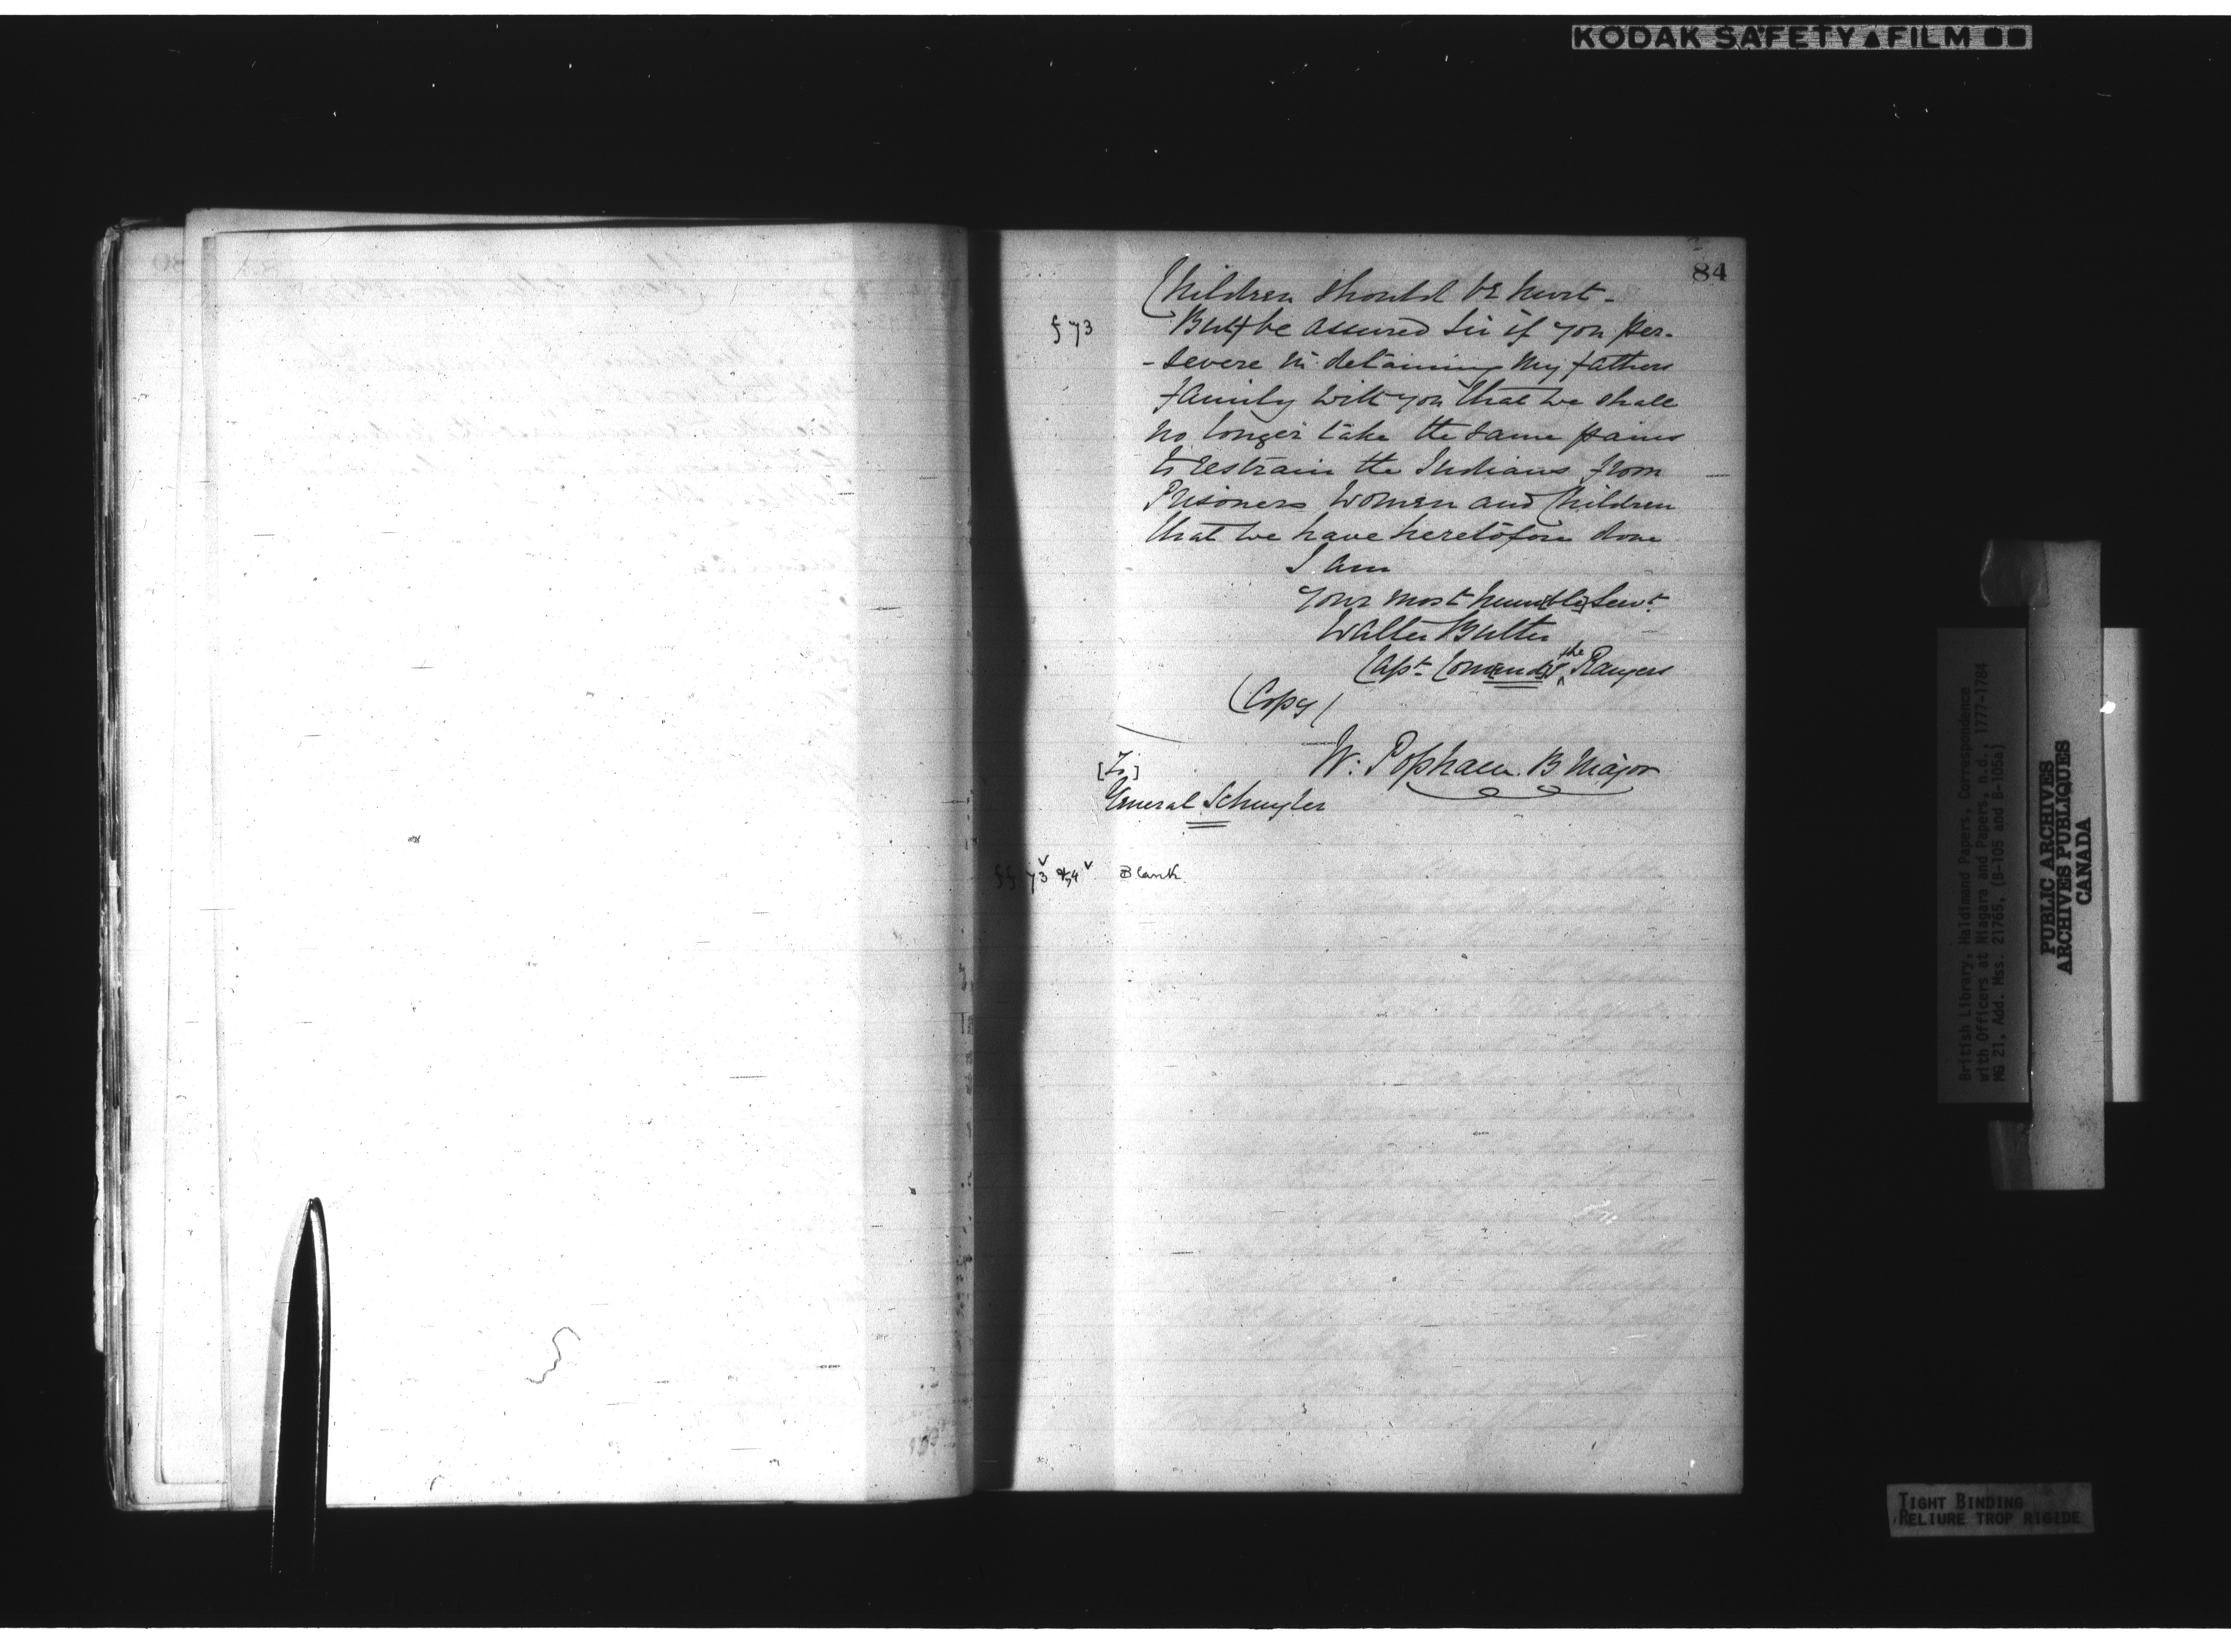 KODAK SAFETY FILM
84
Children should be hurt-
f 73
But be assured Sir if you per-
-severe in detaining my fathers
family with you that we shall
no longer take the same pains
to restrain the Indians from
Prisoners Women and Children
that we have heretofore done
I am
Your most humble Servt
Walter Butler
Capt Comandg the Rangers
(Copy)
W: Popham B Major
[To]
General Schuyler
ff 73v 74v Blank
British Library, Haldimand Papers, Correspondence
with Officers at Niagara and Papers, n.d., 1777-1784
MG 21, Add. Mss. 21765, (B-105 and B-105a)
PUBLIC ARCHIVES
ARCHIVES PUBLIQUES
CANADA
TIGHT BINDING
RELIURE TROP RIGIDE